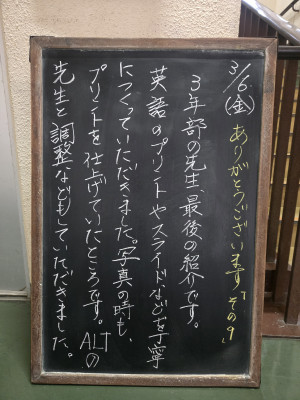 3/6(金)ありがとうございます「その9」
3年部の先生、最後の紹介です。
英語のプリントやスライドなどを丁寧
につくっていただきました。写真の時も、
プリントを仕上げていたところです。ALTの
先生と調整などもしていただきました。